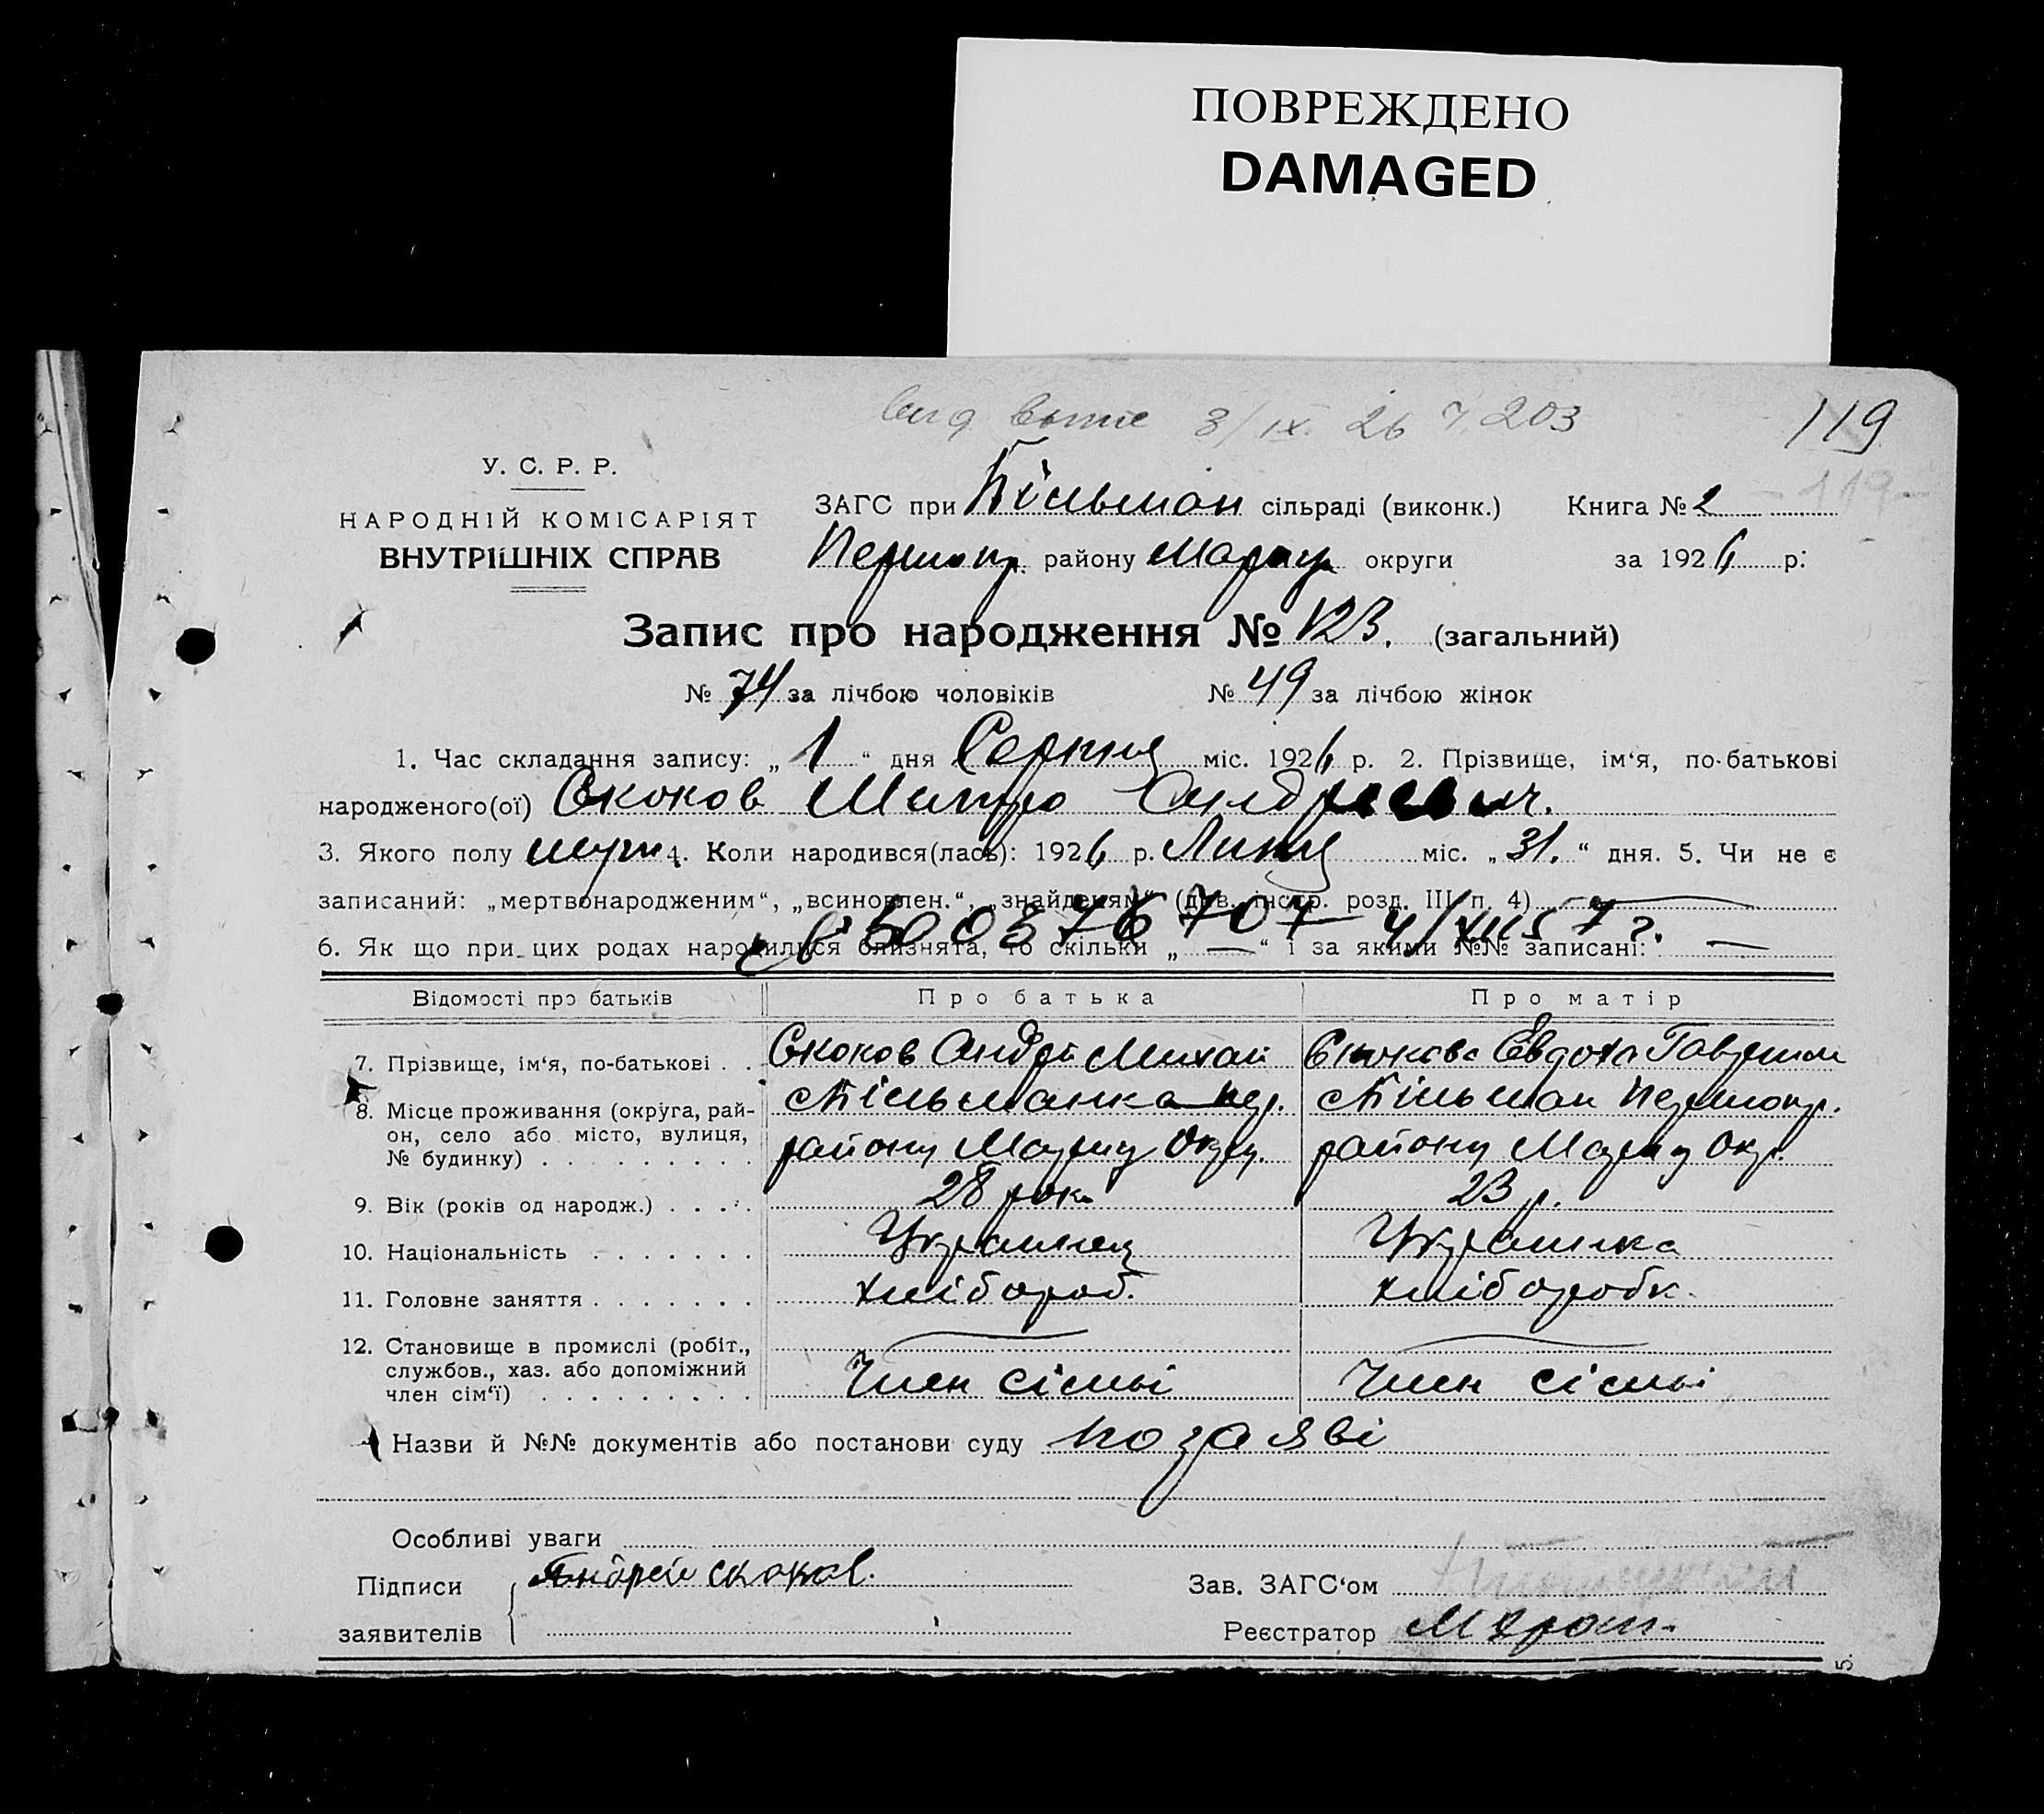 ПОВРЕЖДЕНО
DAMAGED
3/IX. 26 203
119
119
У. С. Р. Р.
НАРОДНІЙ КОМІСАРІЯТ
ВНУТРІШНІХ СПРАВ
ЗАГС при Більман сільраді (виконк.) Книга № 2
району Маріуп округи за 1926 р.
Запис про народження № 123. (загальний)
№ 74 за лічбою чоловіків № 49 за лічбою жінок
1. Час складання запису: „ 1 “ дня Серпня міс. 1926 р. 2. Прізвище, ім‘я, по-батькові
народженого(ої) Скоков Митро Андреевич.
3. Якого полу муж. 4. Коли народився(лась): 1926 р. Липня міс. „ 31. “ дня. 5. Чи не є
записаний: „мертвонародженим“, „всиновлен.“, „знайденям“ (див. інстр. розд. III п. 4)
6. Як що при цих родах народилися близнята, то скільки „ — “ і за якими №№ записані: —
Відомості про батьків Про батька Про матір
7. Прізвище, ім‘я, по-батькові . . Скоков Андрій Михай Скокова Євдоха Гаврилов
8. Місце проживання (округа, рай-
он, село або місто, вулиця,
№ будинку) . . . . . . . . .
с Більманка пер. с Більман Першопр.
району Маріу Окру. району Маріу Окр.
9. Вік (років од народж.) . . . . . 28 рок. 23 р.
10. Національність . . . . . . . Украинец Украинка
11. Головне заняття . . . . . . . хлібороб. хліборобк.
12. Становище в промислі (робіт.,
службов., хаз. або допоміжний
член сім‘ї) . . . . . . . . .
Член сісмьі Член сісмьі
Назви й №№ документів або постанови суду по заяві
Особливі уваги
Підписи Андрей скоков. Зав. ЗАГС‘ом
заявителів Реєстратор
5.